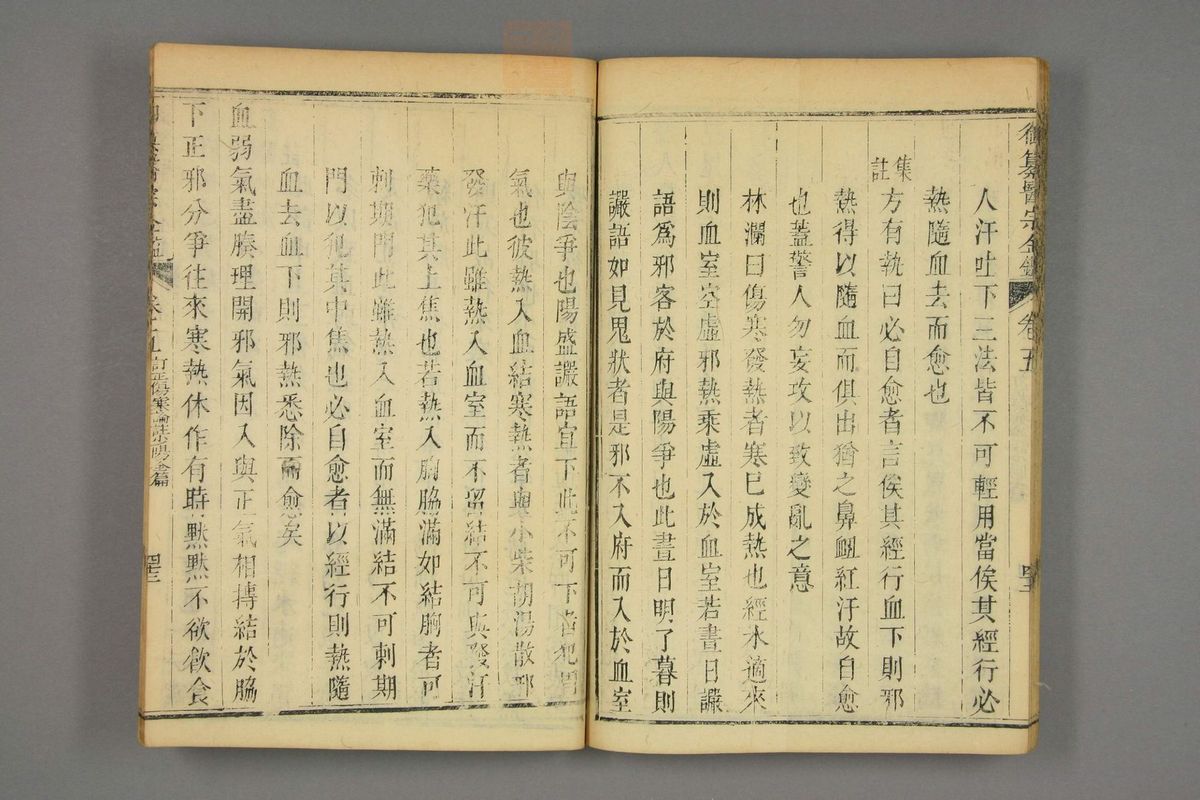 御纂醫宗金鑑 卷五
人汗吐下三法皆不可輕用當俟其經行必
熱隨血去而愈也
集註
方有執曰必自愈者言俟其經行血下則邪
熱得以隨血而俱出猶之鼻衄紅汗故自愈
也蓋警人勿妄攻以致變亂之意
林瀾曰傷寒發熱者寒巳成熱也經水適來
則血室空虛邪熱乘虛入於血室若晝日讝
語爲邪客於府與陽爭也此晝日明了暮則
讝語如見鬼狀者是邪不入府而入於血室
與陰爭也陽盛讝語宜下此不可下者犯胃
氣也彼熱入血結寒熱者與小柴胡湯散邪
發汗此雖熱入血室而不留結不可與發汗
藥犯其上焦也若熱入胸脇滿如結胸者可
刺期門此雖熱入血室而無滿結不可刺期
門以犯其中焦也必自愈者以經行則熱隨
血去血下則邪熱悉除而愈矣
血弱氣盡腠理開邪氣因入與正氣相摶結於脇
下正邪分爭往來寒熱休作有時默默不欲飮食